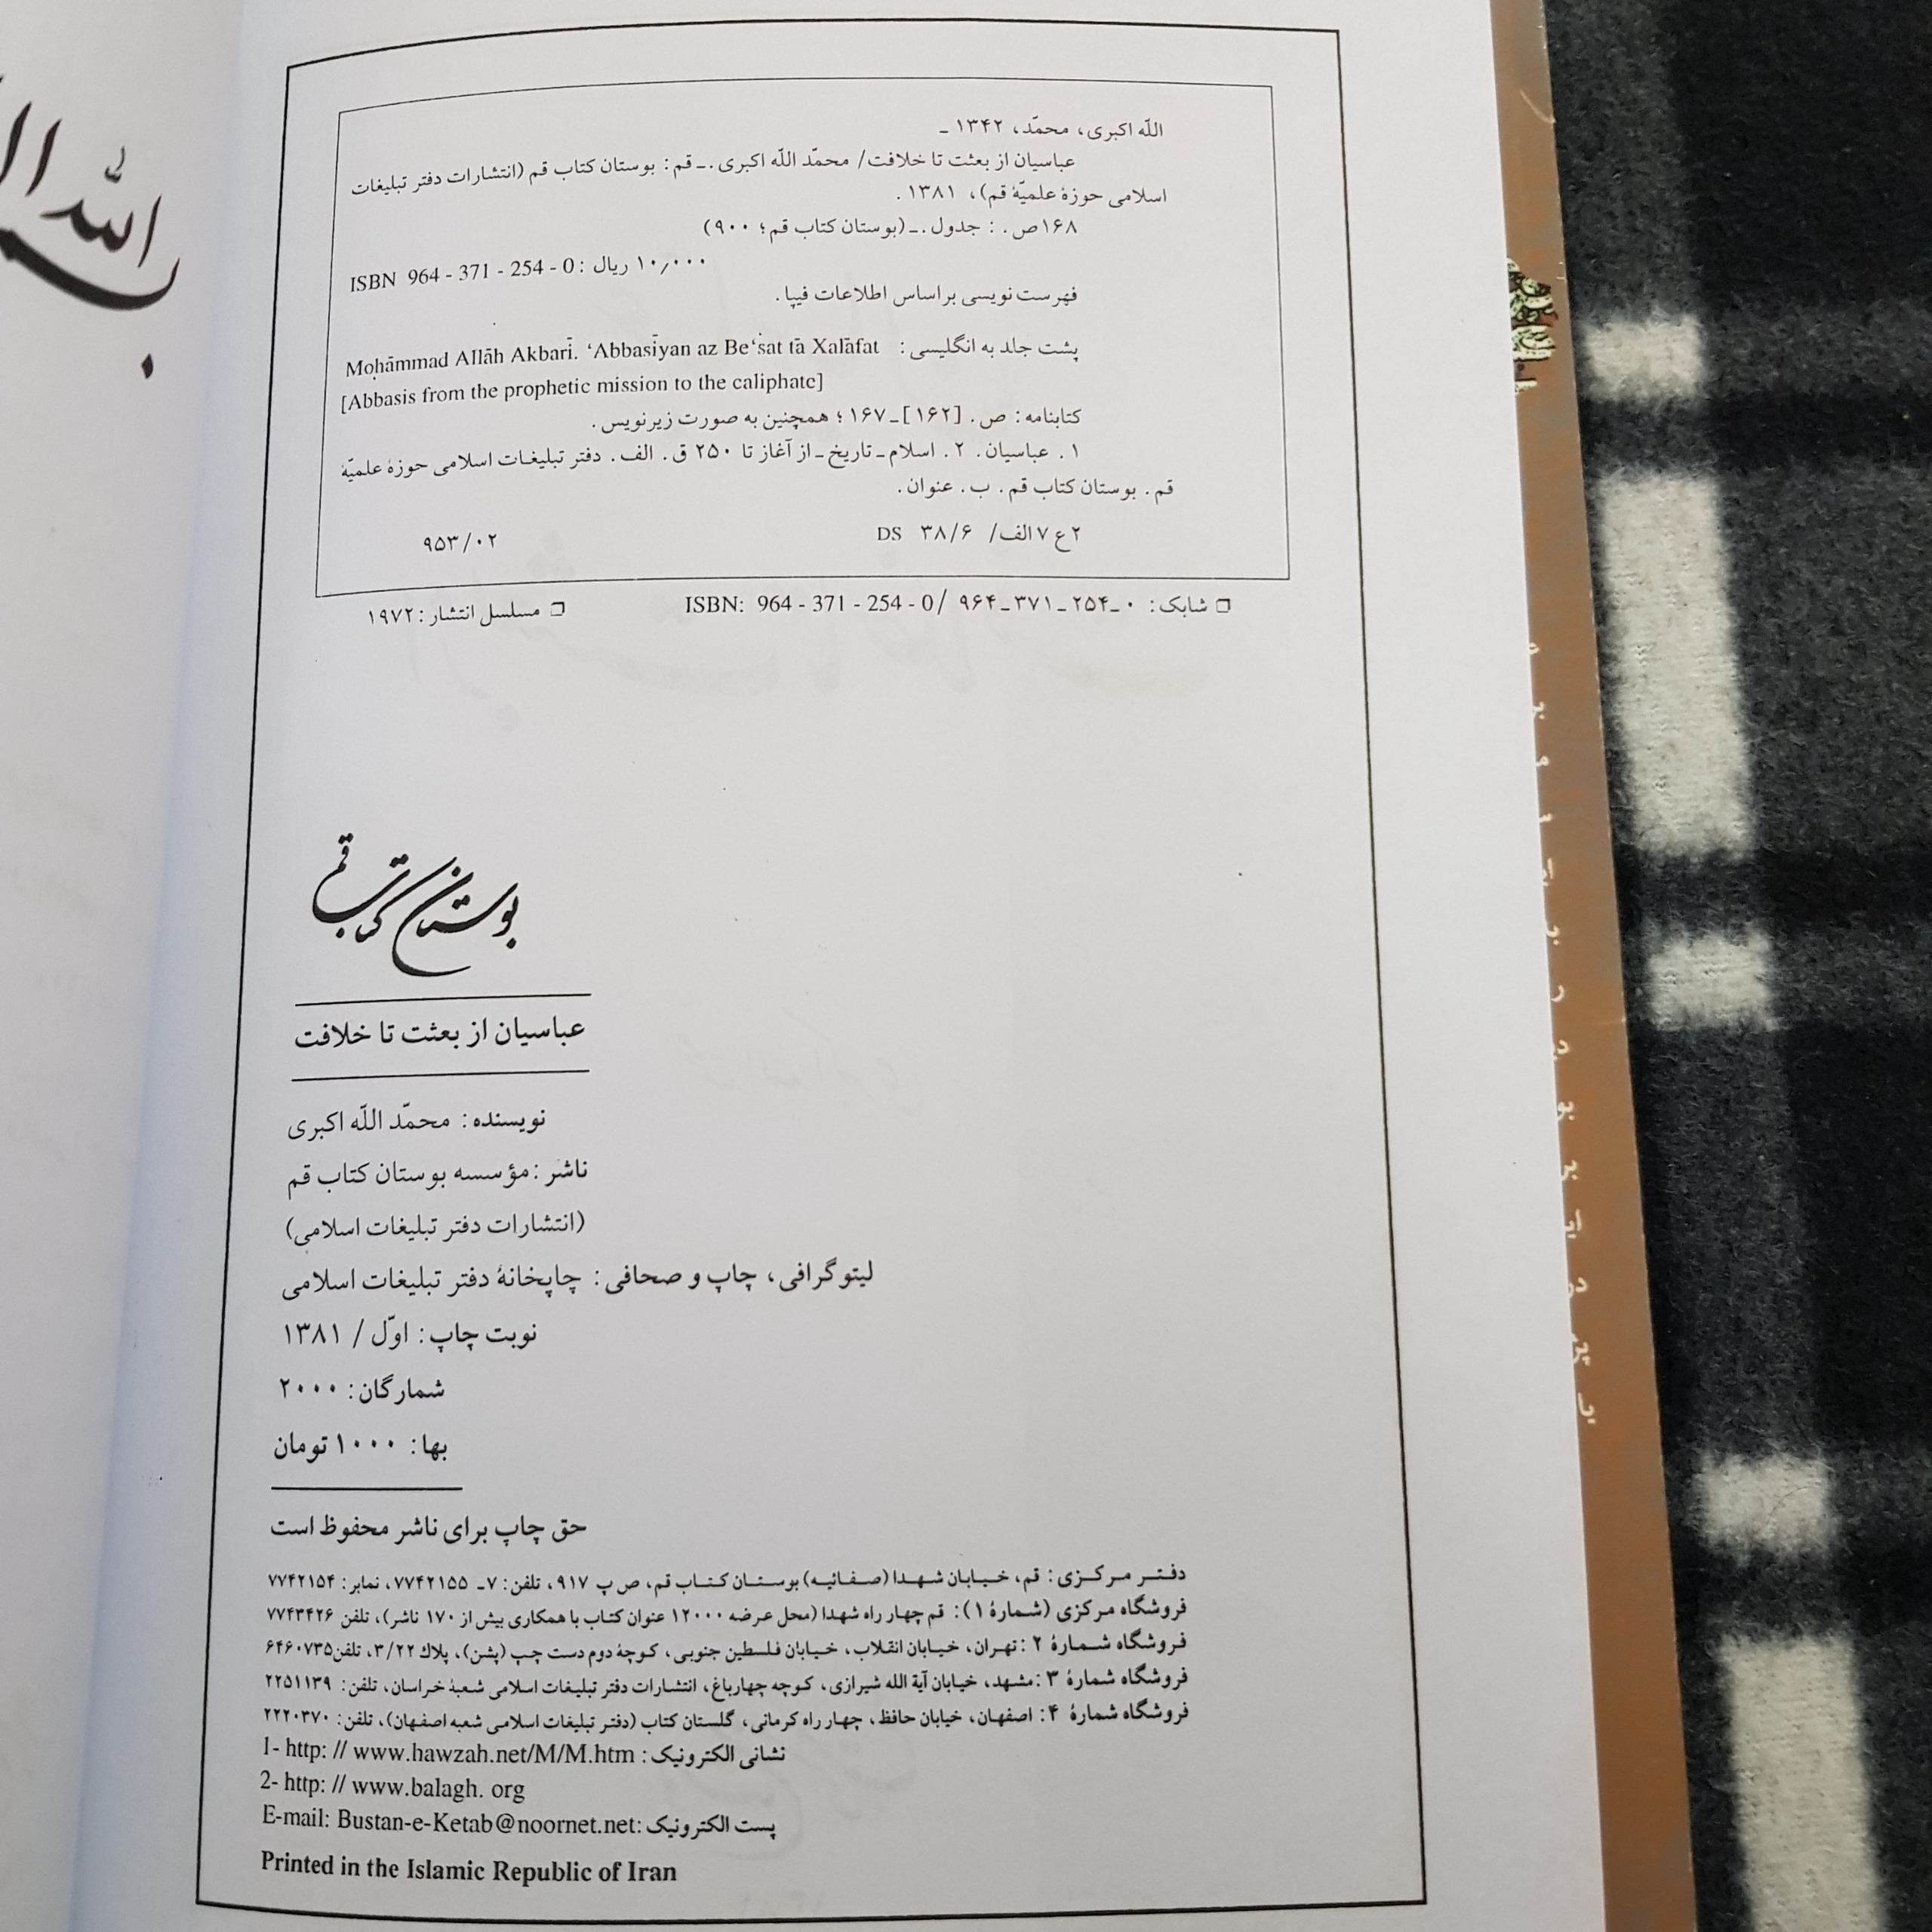 الله اکبری، محمّد، ۱۳۴۲ ـ
عباسیان از بعثت تا خلافت/ محمّد الله اکبری .ـ قم: بوستان کتاب قم (انتشارات دفتر تبلیغات
اسلامی حوزهٔ علمیّهٔ قم)، ۱۳۸۱ .
۱۶۸ص . : جدول .ـ (بوستان کتاب قم؛ ۹۰۰)
ISBN 964 - 371 - 254 - 0 : ۱۰٫۰۰۰ ریال
فهرست نویسی براساس اطلاعات فیپا .
پشت جلد به انگلیسی : Moḥāmmad Allāh Akbarī. ‘Abbasīyan az Be‘sat tā Xalāfat
[Abbasis from the prophetic mission to the caliphate]
کتابنامه: ص . [۱۶۲] ـ ۱۶۷ ؛ همچنین به صورت زیرنویس .
۱ . عباسیان . ۲ . اسلام ـ تاریخ ـ از آغاز تا ۲۵۰ ق . الف . دفتر تبلیغات اسلامی حوزهٔ علمیّهٔ
قم . بوستان کتاب قم . ب . عنوان .
۲ع ۷الف/ ۳۸/۶ DS ۹۵۳/۰۲
❐ شابک: ۰ـ۲۵۴ـ۳۷۱ـ۹۶۴ /ISBN: 964 - 371 - 254 - 0 ❐ مسلسل انتشار: ۱۹۷۲
بوستان کتاب قم
عباسیان از بعثت تا خلافت
نویسنده: محمّد الله اکبری
ناشر: مؤسسه بوستان کتاب قم
(انتشارات دفتر تبلیغات اسلامی)
لیتوگرافی، چاپ و صحافی: چاپخانهٔ دفتر تبلیغات اسلامی
نوبت چاپ: اوّل / ۱۳۸۱
شمارگان: ۲۰۰۰
بها: ۱۰۰۰ تومان
حق چاپ برای ناشر محفوظ است
دفتـر مرکـزی: قم، خیـابان شهـدا (صفـائیـه) بوستـان کتـاب قم، ص پ ۹۱۷، تلفن: ۷ـ ۷۷۴۲۱۵۵، نمابر: ۷۷۴۲۱۵۴
فروشگاه مرکزی (شمارهٔ ۱): قم چهار راه شهدا (محل عرضه ۱۲۰۰۰ عنوان کتاب با همکاری بیش از ۱۷۰ ناشر)، تلفن ۷۷۴۳۴۲۶
فروشگاه شمارهٔ ۲ : تهران، خیابان انقلاب، خیابان فلسطین جنوبی، کوچهٔ دوم دست چپ (پشن)، پلاک ۳/۲۲، تلفن۶۴۶۰۷۳۵
فروشگاه شمارهٔ ۳ : مشهد، خیابان آیة الله شیرازی، کوچه چهارباغ، انتشارات دفتر تبلیغات اسلامی شعبهٔ خراسان، تلفن: ۲۲۵۱۱۳۹
فروشگاه شمارهٔ ۴: اصفهان، خیابان حافظ، چهار راه کرمانی، گلستان کتاب (دفتر تبلیغات اسلامی شعبه اصفهان)، تلفن: ۲۲۲۰۳۷۰
نشانی الکترونیک : 1- http: // www.hawzah.net/M/M.htm
2- http: // www.balagh. org
پست الکترونیک :E-mail: Bustan-e-Ketab@noornet.net
Printed in the Islamic Republic of Iran